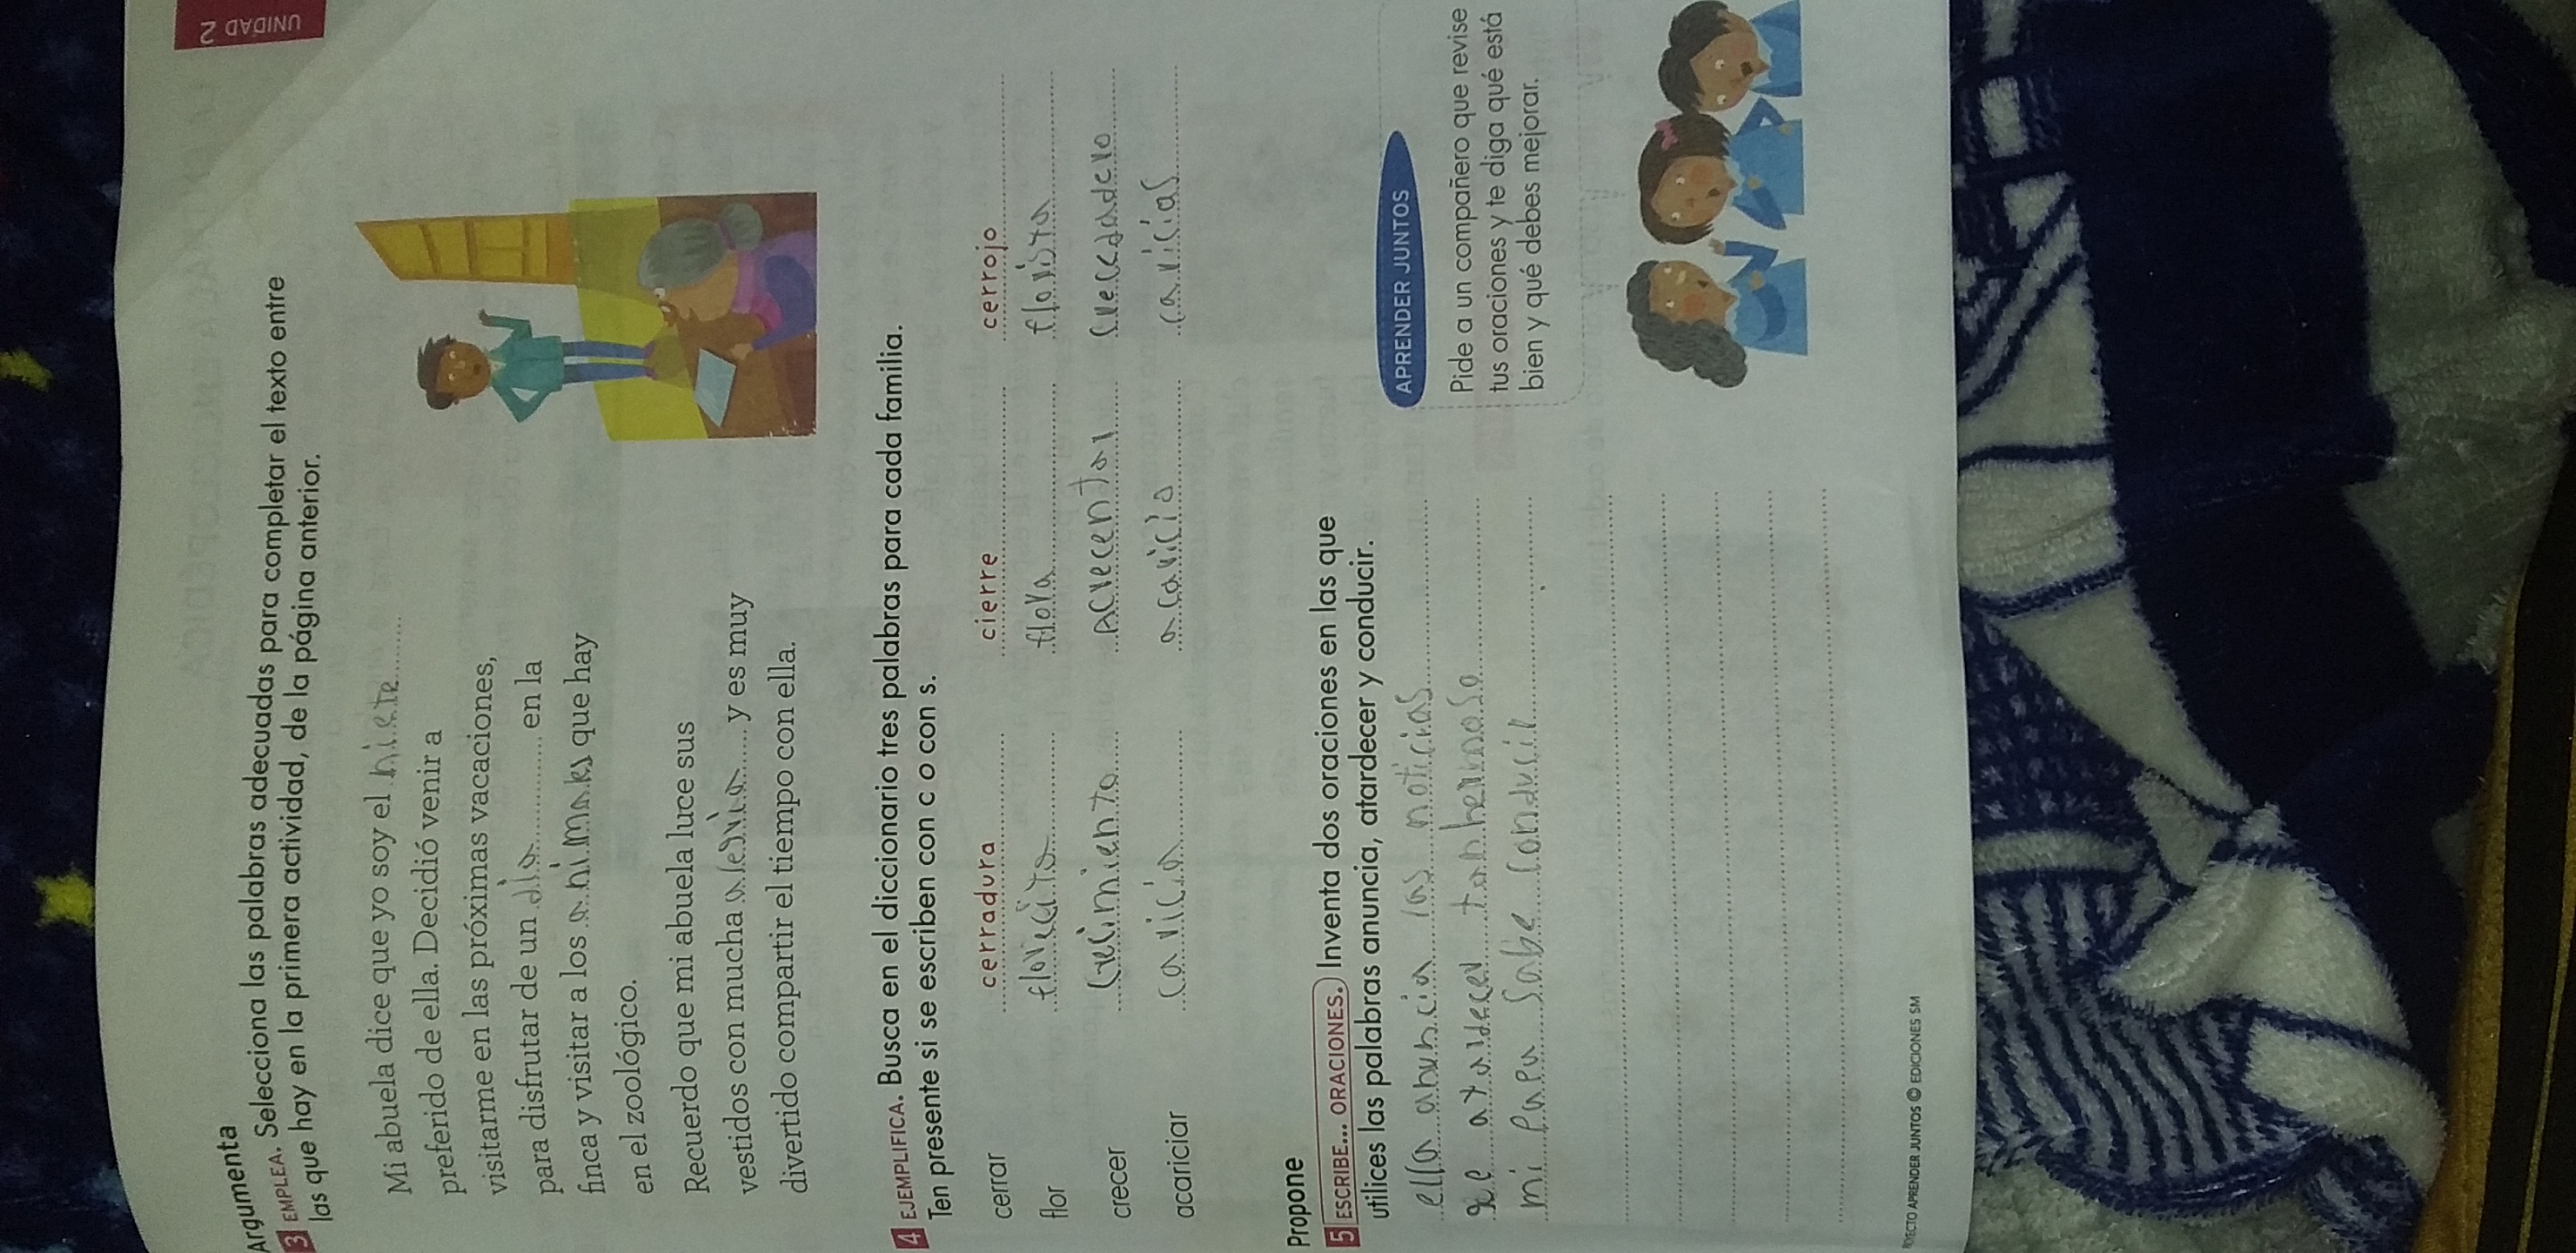 UNIDAD 2
Argumenta
3 EMPLEA. Selecciona las palabras adecuadas para completar el texto entre
las que hay en la primera actividad, de la página anterior.
Mi abuela dice que yo soy el
preferido de ella. Decidió venir a
visitarme en las próximas vacaciones,
para disfrutar de un día en la
finca y visitar a los animales que hay
en el zoológico.
Recuerdo que mi abuela luce sus
vestidos con mucha alegria y es muy
divertido compartir el tiempo con ella.
4 EJEMPLIFICA. Busca en el diccionario tres palabras para cada familia.
Ten presente si se escriben con c o con s.
cerrar cerradura cierre cerrojo
flor florecita flora florista
crecer crecimiento acrecentar crecedadero
acariciar caricia acaricio caricias
Propone
5 ESCRIBE... ORACIONES. Inventa dos oraciones en las que
utilices las palabras anuncia, atardecer y conducir.
ella anuncia las noticias
atardecer tan hermoso
mi papa sabe conducir
APRENDER JUNTOS
Pide a un compañero que revise
tus oraciones y te diga qué está
bien y qué debes mejorar.
PROYECTO APRENDER JUNTOS © EDICIONES SM